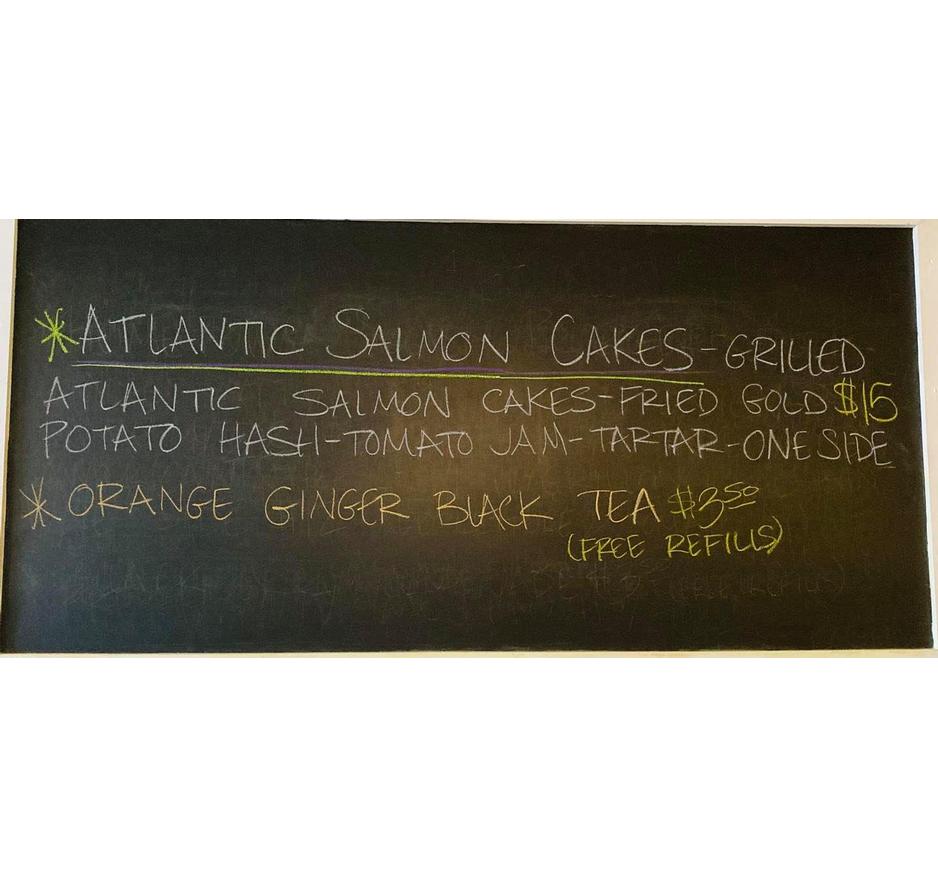 *ATLANTIC SALMON CAKES-GRILLED
ATLANTIC SALMON CAKES-FRIED GOLD $15
POTATO HASH-TOMATO JAM-TARTAR-ONE SIDE
*ORANGE GINGER BLACK TEA $3.50
(FREE REFILLS)